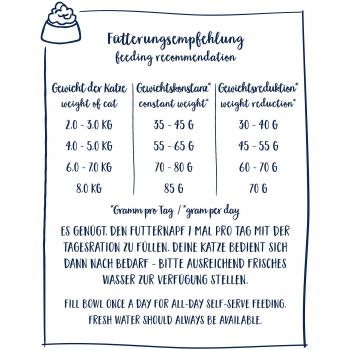 Fütterungsempfehlung
feeding recommendation
Gewicht der Katze Gewichtskonstanz* Gewichtsreduktion*
weight of cat constant weight* weight reduction*
2.0 - 3.0 KG 35 - 45 G 30 - 40 G
4.0 - 5.0 KG 55 - 65 G 45 - 55 G
6.0 - 7.0 KG 70 - 80 G 60 - 70 G
8.0 KG 85 G 70 G
*Gramm pro Tag / *gram per day
ES GENÜGT, DEN FUTTERNAPF 1 MAL PRO TAG MIT DER
TAGESRATION ZU FÜLLEN. DEINE KATZE BEDIENT SICH
DANN NACH BEDARF - BITTE AUSREICHEND FRISCHES
WASSER ZUR VERFÜGUNG STELLEN.
FILL BOWL ONCE A DAY FOR ALL-DAY SELF-SERVE FEEDING.
FRESH WATER SHOULD ALWAYS BE AVAILABLE.